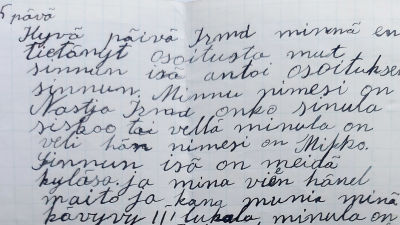 5 pävä
Hyvä päivä Irmd minnä en
tietänyt osoitusta mut
sinnun isä antoi osoituksen
sinnun. Minnu nimesi on
Nastja Irmd onko sinula
siskoo tai vellä minula on
veli hän nimesi on Mipko.
Sinnun isä on meidä
kylässä ja mina vien hänel
maito ja kana munia minä
käyvyy III lukala, minula on